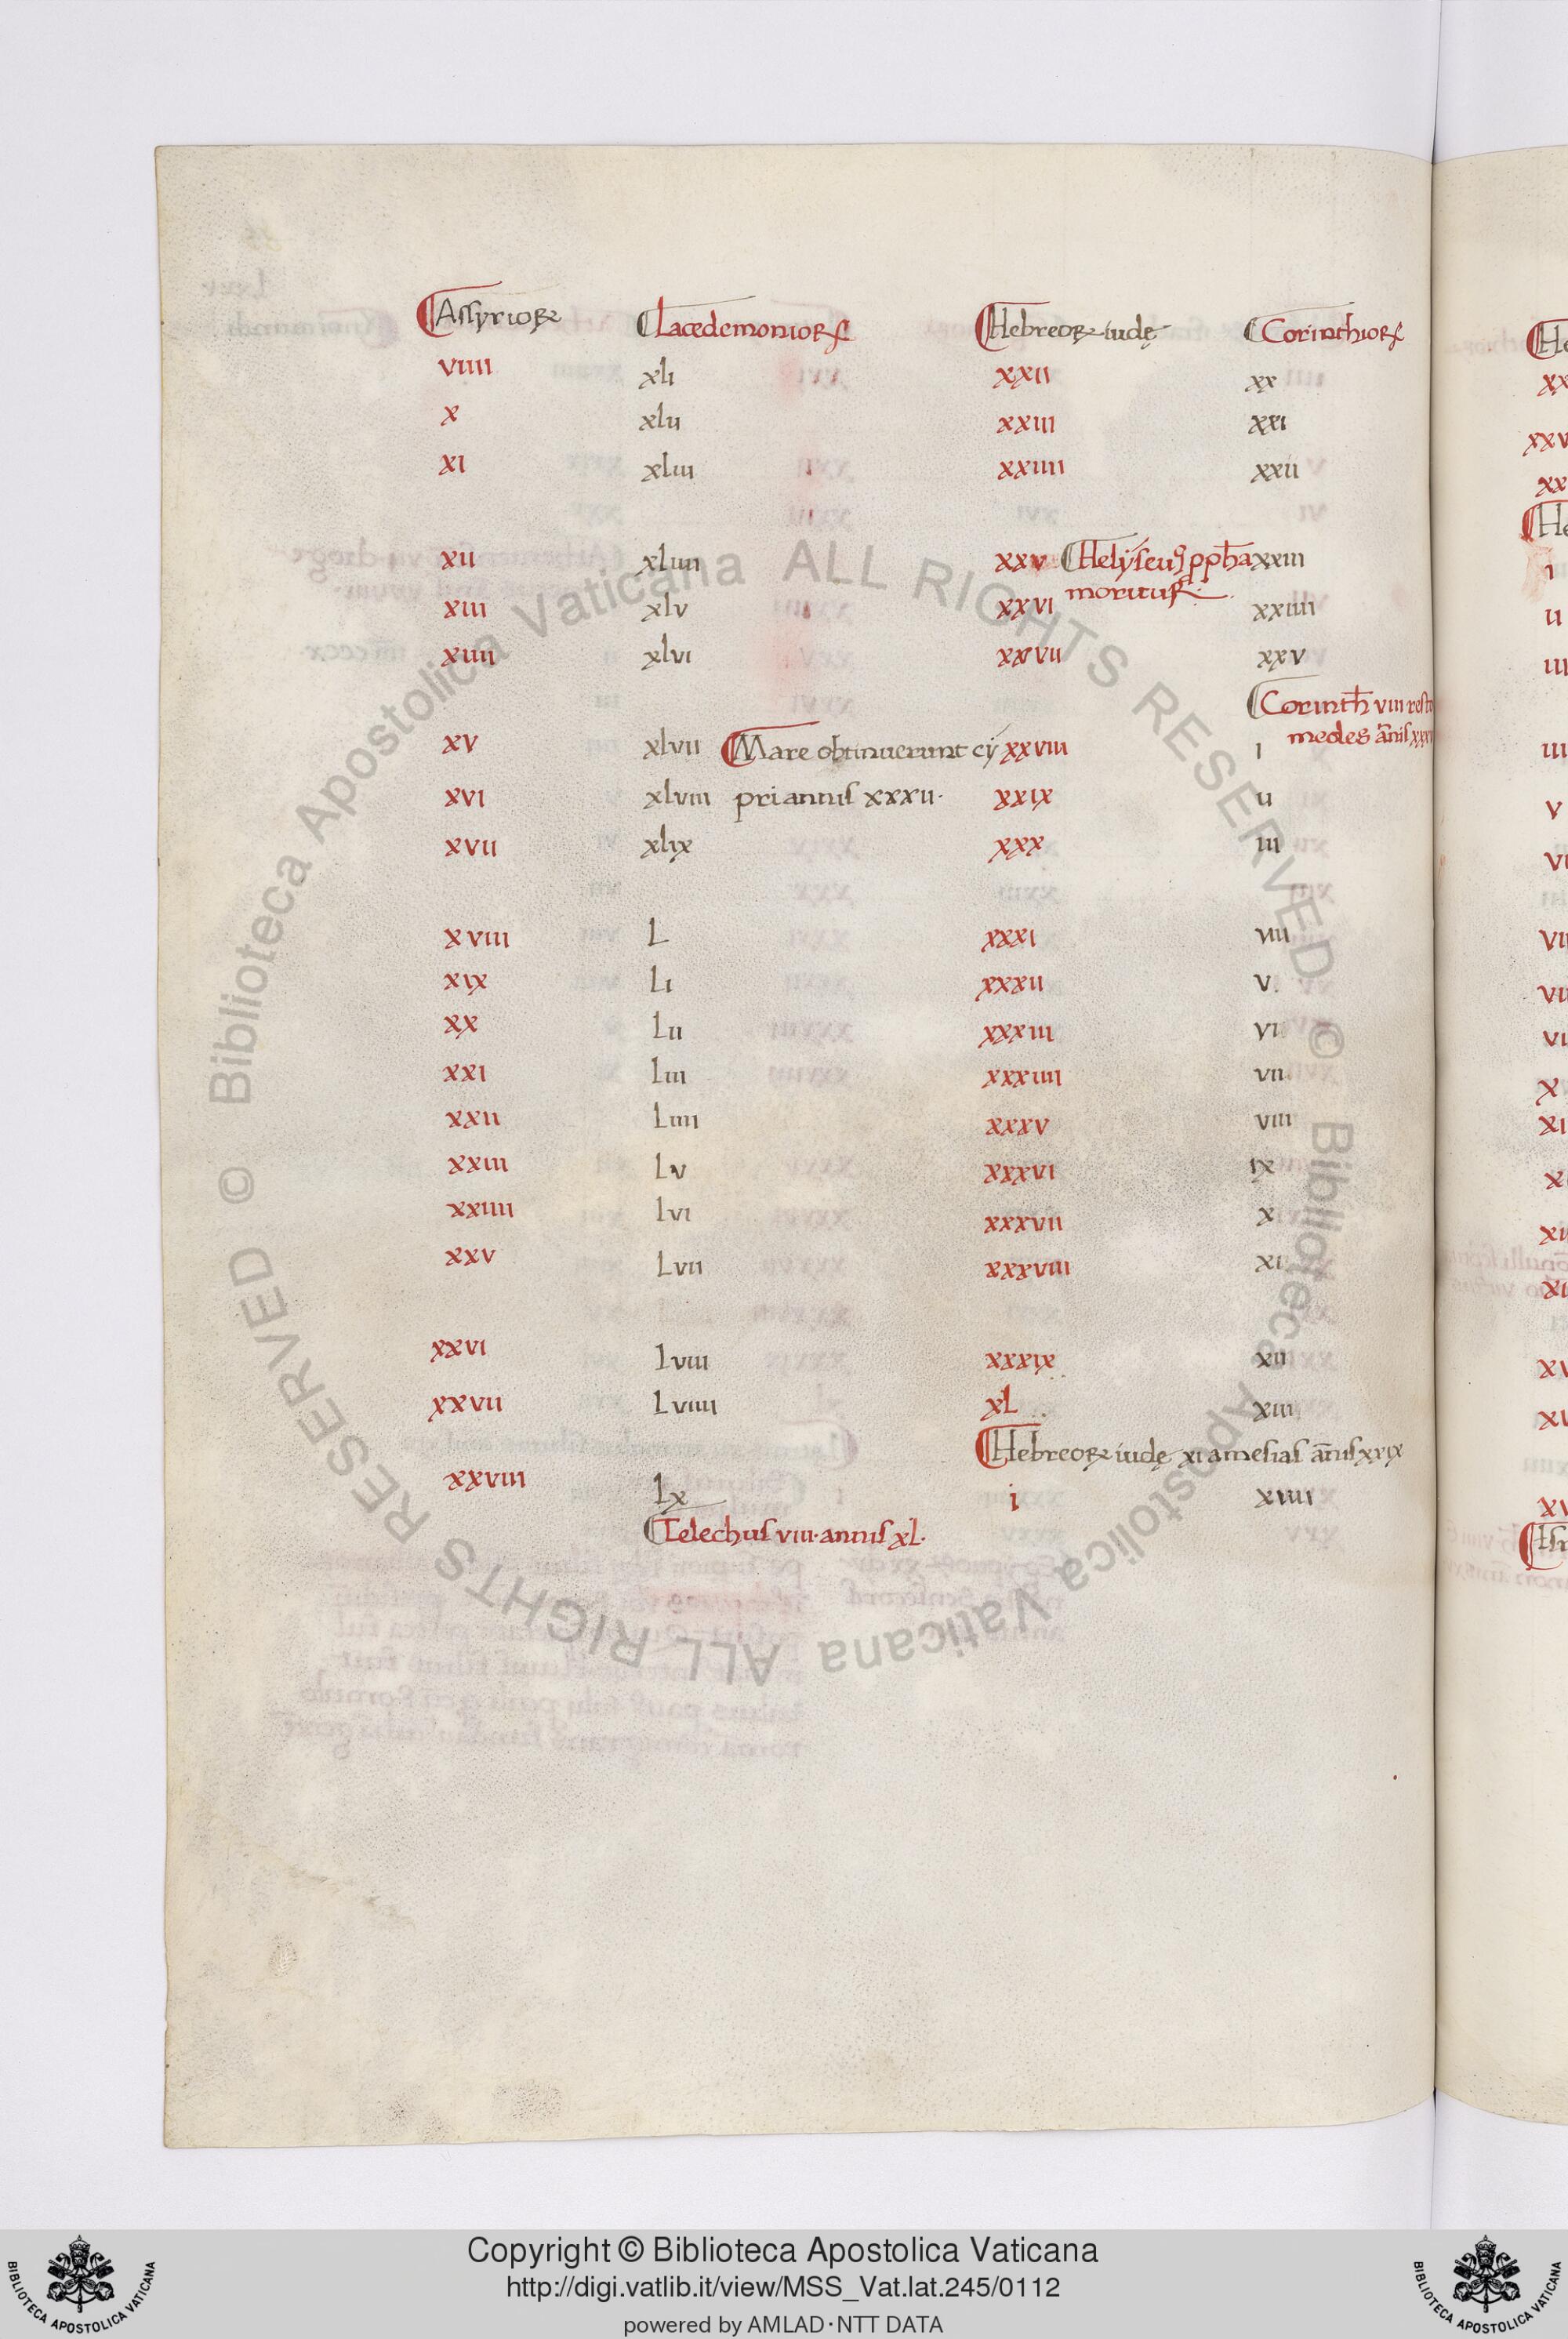 Assyrioꝝ Lacedemonioꝝ Hebreoꝝ iudę Corinthioꝝ
viiii xli xxii xx
x xlii xxiii xxi
xi xliii xxiiii xxii
xii xliiii xxv Helyseus ppha xxiii
moritur.
xiii xlv xxvi xxiiii
xiiii xlvi xxvii xxv
Corinth viii
medes annis
xv xlvii Mare obtinuerunt cy xxviii i
xvi xlviii pri annis xxxii. xxix ii
xvii xlix xxx iii
xviii L xxxi iiii
xix Li xxxii v.
xx Lii xxxiii vi
xxi Liii xxxiiii vii
xxii Liiii xxxv viii
xxiii Lv xxxvi ix
xxiiii Lvi xxxvii x
xxv Lvii xxxviii xi
xxvi Lviii xxxix xii
xxvii Lviiii xL xiii
Hebreoꝝ iudę xi amesias ānis xxix
xxviii Lx i xiiii
Telechus viii. annis xl.
© Biblioteca Apostolica Vaticana ALL RIGHTS RESERVED © Biblioteca Apostolica Vaticana ALL RIGHTS RESERVED
Copyright © Biblioteca Apostolica Vaticana
http://digi.vatlib.it/view/MSS_Vat.lat.245/0112
powered by AMLAD·NTT DATA
BIBLIOTECA APOSTOLICA VATICANA
BIBLIOTECA APOSTOLICA VATICANA